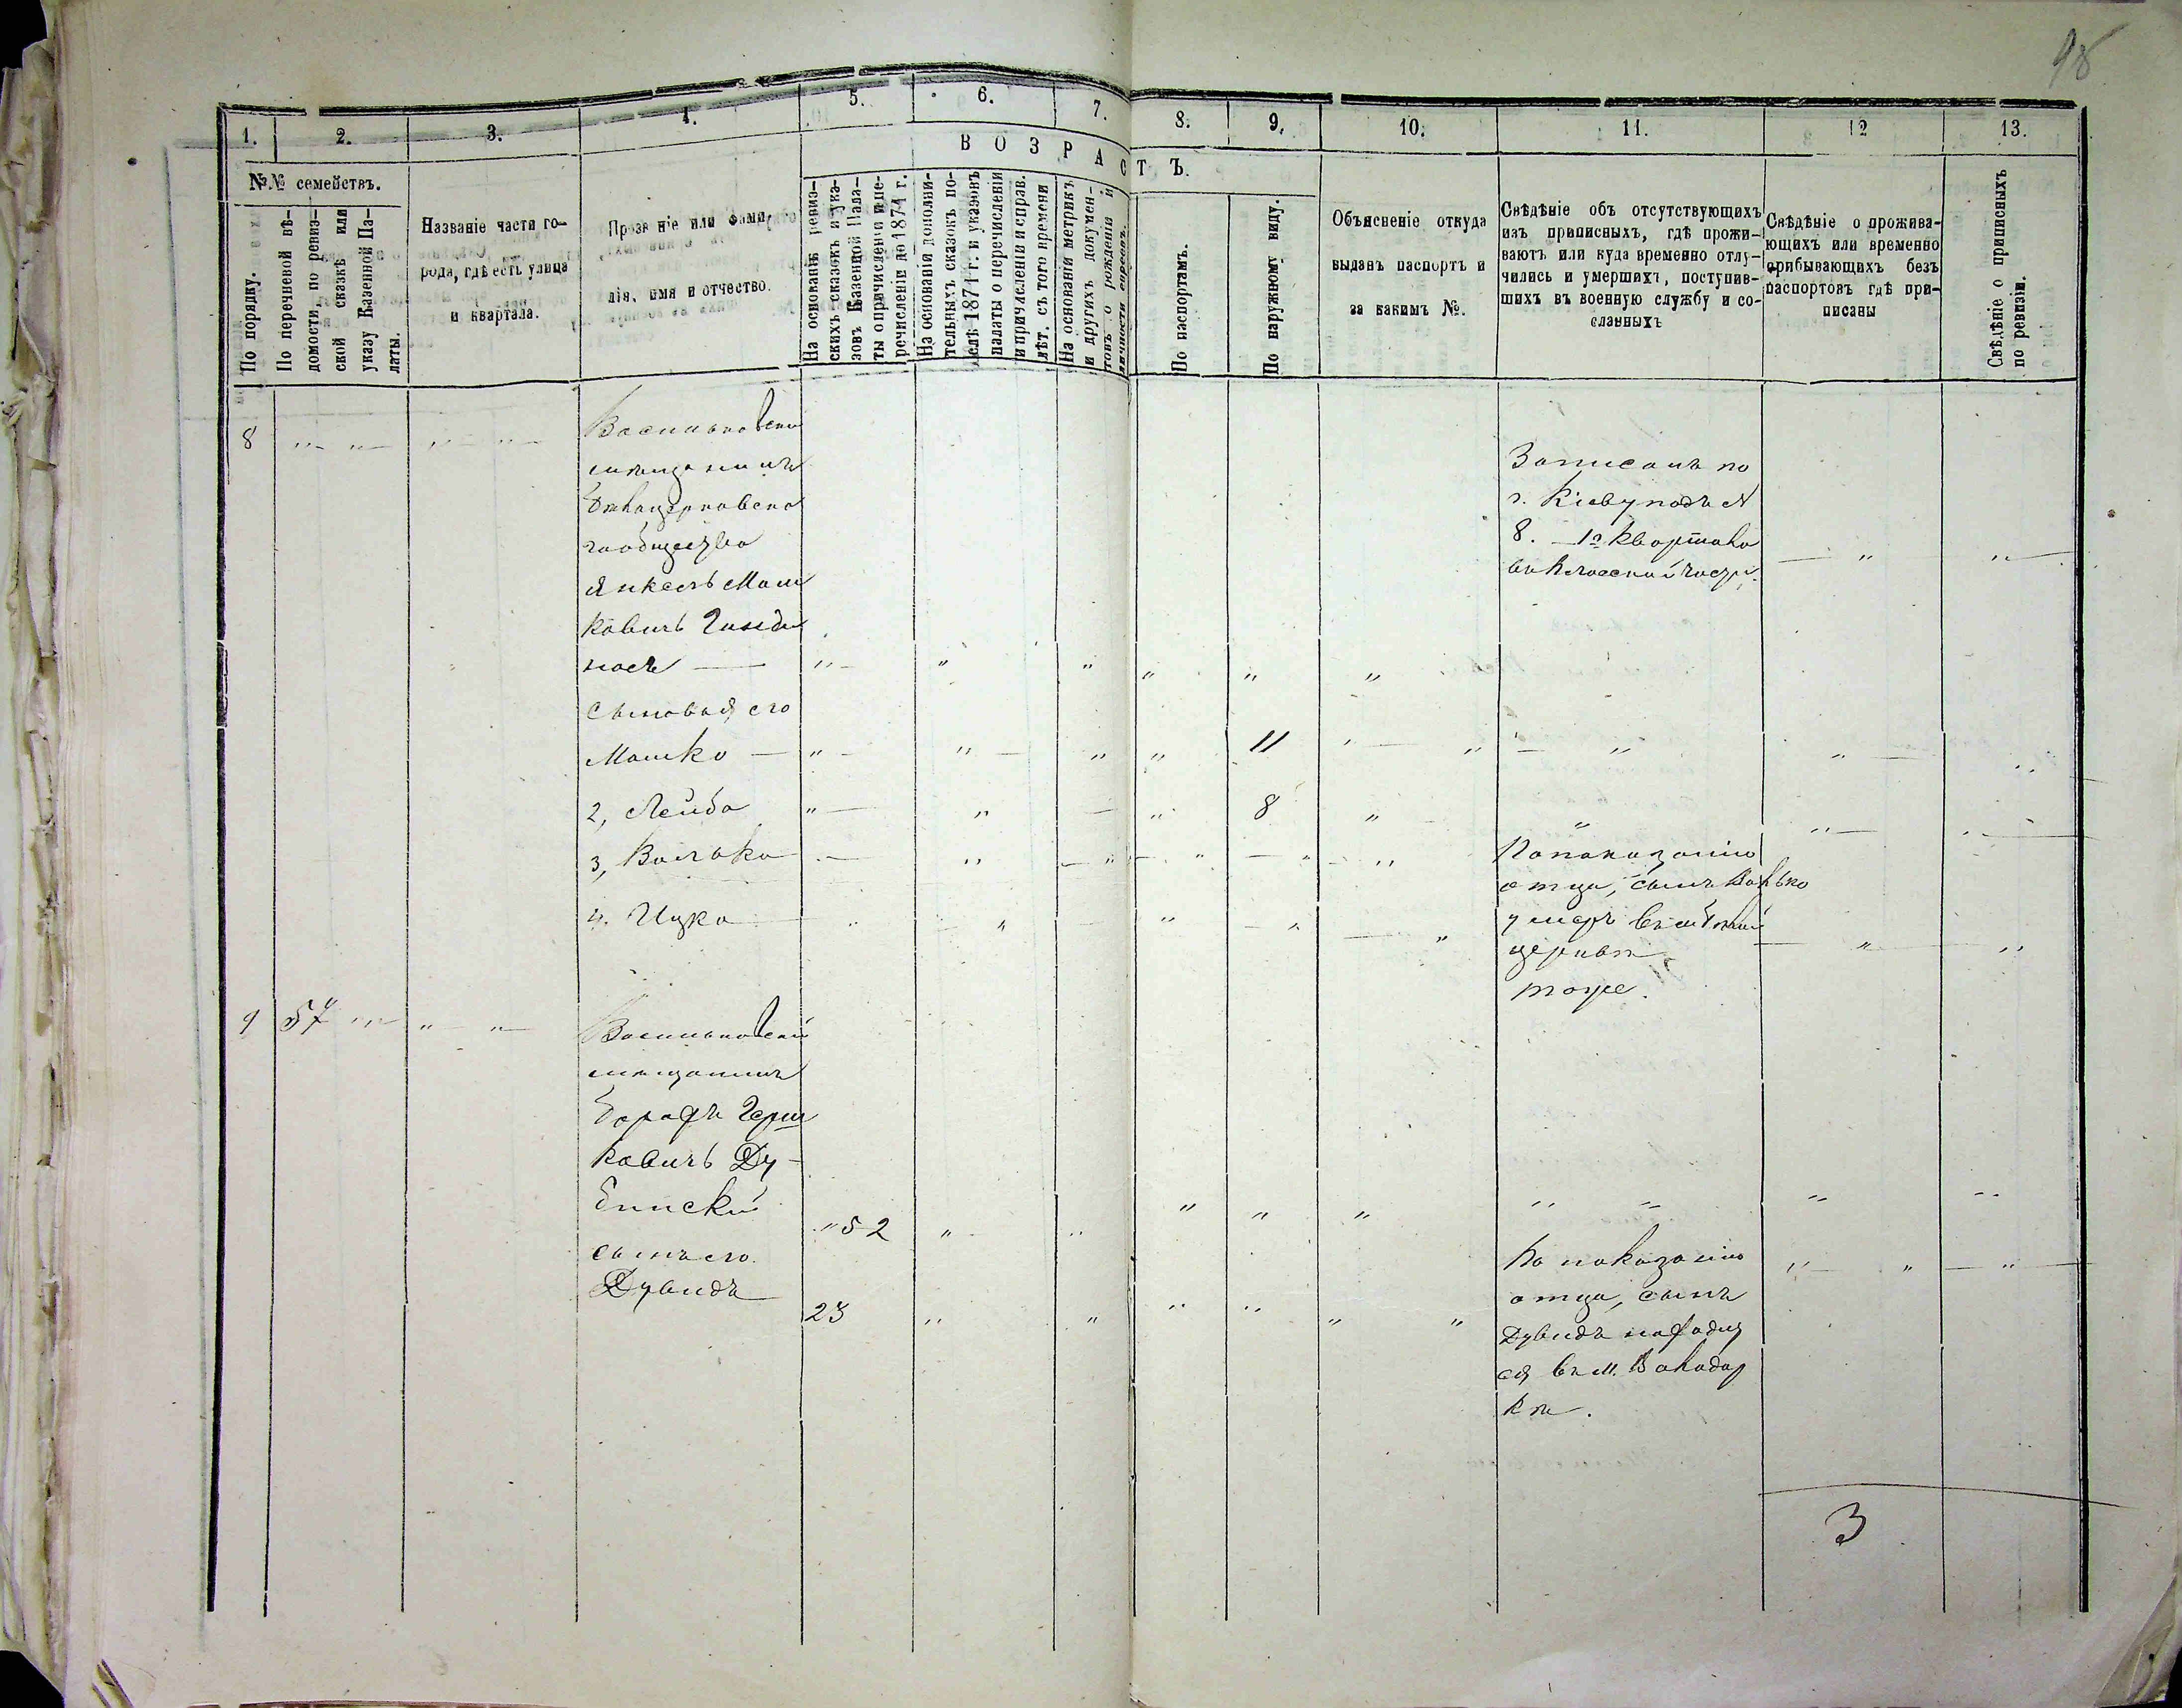 98
1. 2. 3. 4. 5. 6. 7. 8. 9. 10. 11. 12 13.
ВОЗРАСТЪ.
№№ семействъ.
По порядку.
По перечневой вѣ-
домости, по ревиз-
ской сказкѣ или
указу Казенной Па-
латы.
Названіе части го-
рода, гдѣ есть улица
и квартала.
Прозваніе или фами-
лія, имя и отчество.
На основаніи ревиз-
скихъ сказокъ и ука-
зовъ Казенной Пала-
ты о причисленіи и пе-
речисленіи до 1874 г.
На основаніи дополни-
тельныхъ сказокъ по-
слѣ 1874 г. и указовъ
палаты о перечисленіи
и причисленіи и справ.
лѣт. съ того времени
На основаніи метрикъ
и другихъ докумен-
товъ о рожденіи и
личности евреевъ.
По паспортамъ.
По наружному виду.
Объясненіе откуда
выданъ паспортъ и
за какимъ №.
Свѣдѣніе объ отсутствующихъ
изъ приписныхъ, гдѣ прожи-
ваютъ или куда временно отлу-
чились и умершихъ, поступив-
шихъ въ военную службу и со-
сланныхъ
Свѣдѣніе о прожива-
ющихъ или временно
прибывающихъ безъ
паспортовъ гдѣ при-
писаны
Свѣдѣніе о приписныхъ
по ревизіи.
8 " " " "
Васильковскій
мѣщанинъ
Бѣлоцерковска
го общества
Янкель Мош
ковичъ
носъ — " " " " " "
Записанъ по
г. Кіеву подъ №
8. 1го квартала
части.
" "
Сыновья его
Мошко — " " " " 11 " " " " " "
2, Лейба " " — " 8 " " " "
3, Волько — " " " " "
4. Ицко " " " " "
По показанію
отца, сынъ Волько
умеръ въ Бѣлой
церквѣ
тоже.
" "
9 57 " " "
Васильковскій
мѣщанинъ
Герш
ковичъ Ду-
бинскій
" 52 " " " " " " " " "
сынъ его
Дувидъ
23 " " " " " "
По показанію
отца, сынъ
Дувидъ находит
ся въ м. Володар
кѣ.
" " "
3